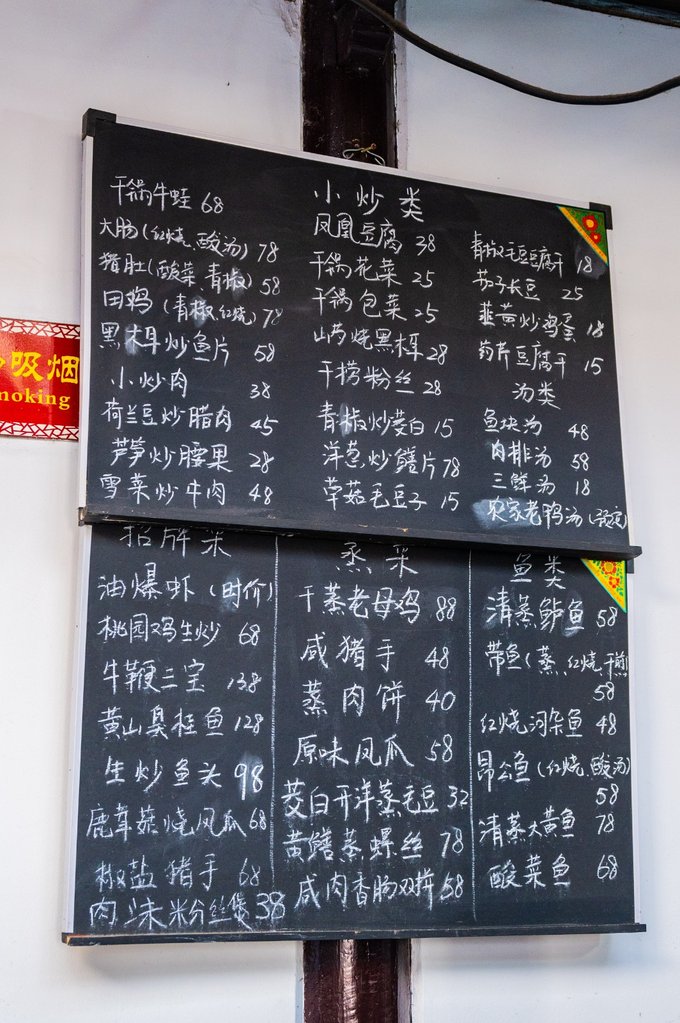 小炒类
干锅牛蛙 68
大肠(红烧、酸汤) 78
猪肚(酸菜、青椒) 58
田鸡(青椒、红烧) 78
黑木耳炒鱼片 58
小炒肉 38
荷兰豆炒腊肉 45
芦笋炒腰果 28
雪菜炒牛肉 48
凤凰豆腐 38
干锅花菜 25
干锅包菜 25
山芍烧黑木耳 28
干捞粉丝 28
青椒炒茭白 15
洋葱炒鳝片 78
草菇毛豆子 15
青椒毛豆豆腐干 18
茄子长豆 25
韭黄炒鸡蛋 18
药芹豆腐干 15
汤类
鱼块汤 48
肉排汤 58
三鲜汤 18
农家老鸭汤(预定)
招牌菜
油爆虾(时价)
桃园鸡生炒 68
牛鞭三宝 138
黄山臭桂鱼 128
生炒鱼头 98
鹿茸菇烧凤爪 68
椒盐猪手 68
肉沫粉丝煲 38
蒸菜
干蒸老母鸡 88
咸猪手 48
蒸肉饼 40
原味凤爪 58
茭白开洋蒸毛豆 32
黄鳝蒸螺丝 78
咸肉香肠双拼 58
鱼类
清蒸鲈鱼 58
带鱼(蒸、红烧、干煎)
58
红烧河杂鱼 48
昂公鱼(红烧、酸汤)
58
清蒸大黄鱼 78
酸菜鱼 68
吸烟
moking